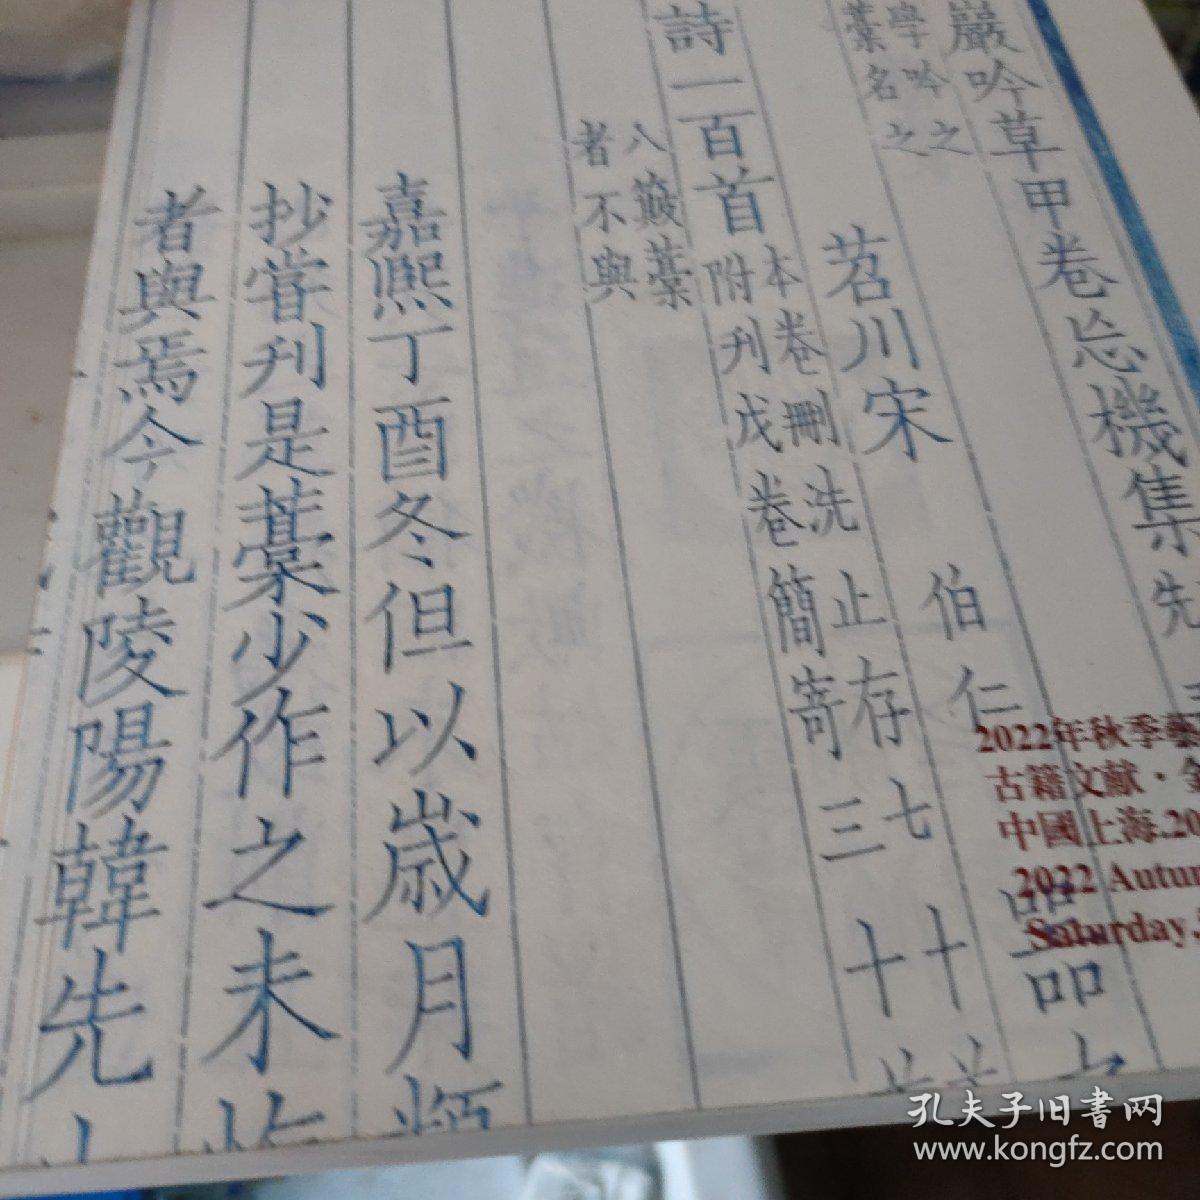 巖吟草甲卷忘機集先
學吟之
藁名之
苕川宋 伯仁
詩一百首
本卷刪洗止存七十
附刋戊卷簡寄三十
八簸藁
者不與
嘉熙丁酉冬但以歲月
抄嘗刋是藁少作之未
者與焉今觀陵陽韓先
2022年秋季藝
古籍文献·金
中國上海.20
2022 Autu
Saturday.
品
孔夫子旧書网
www.kongfz.com